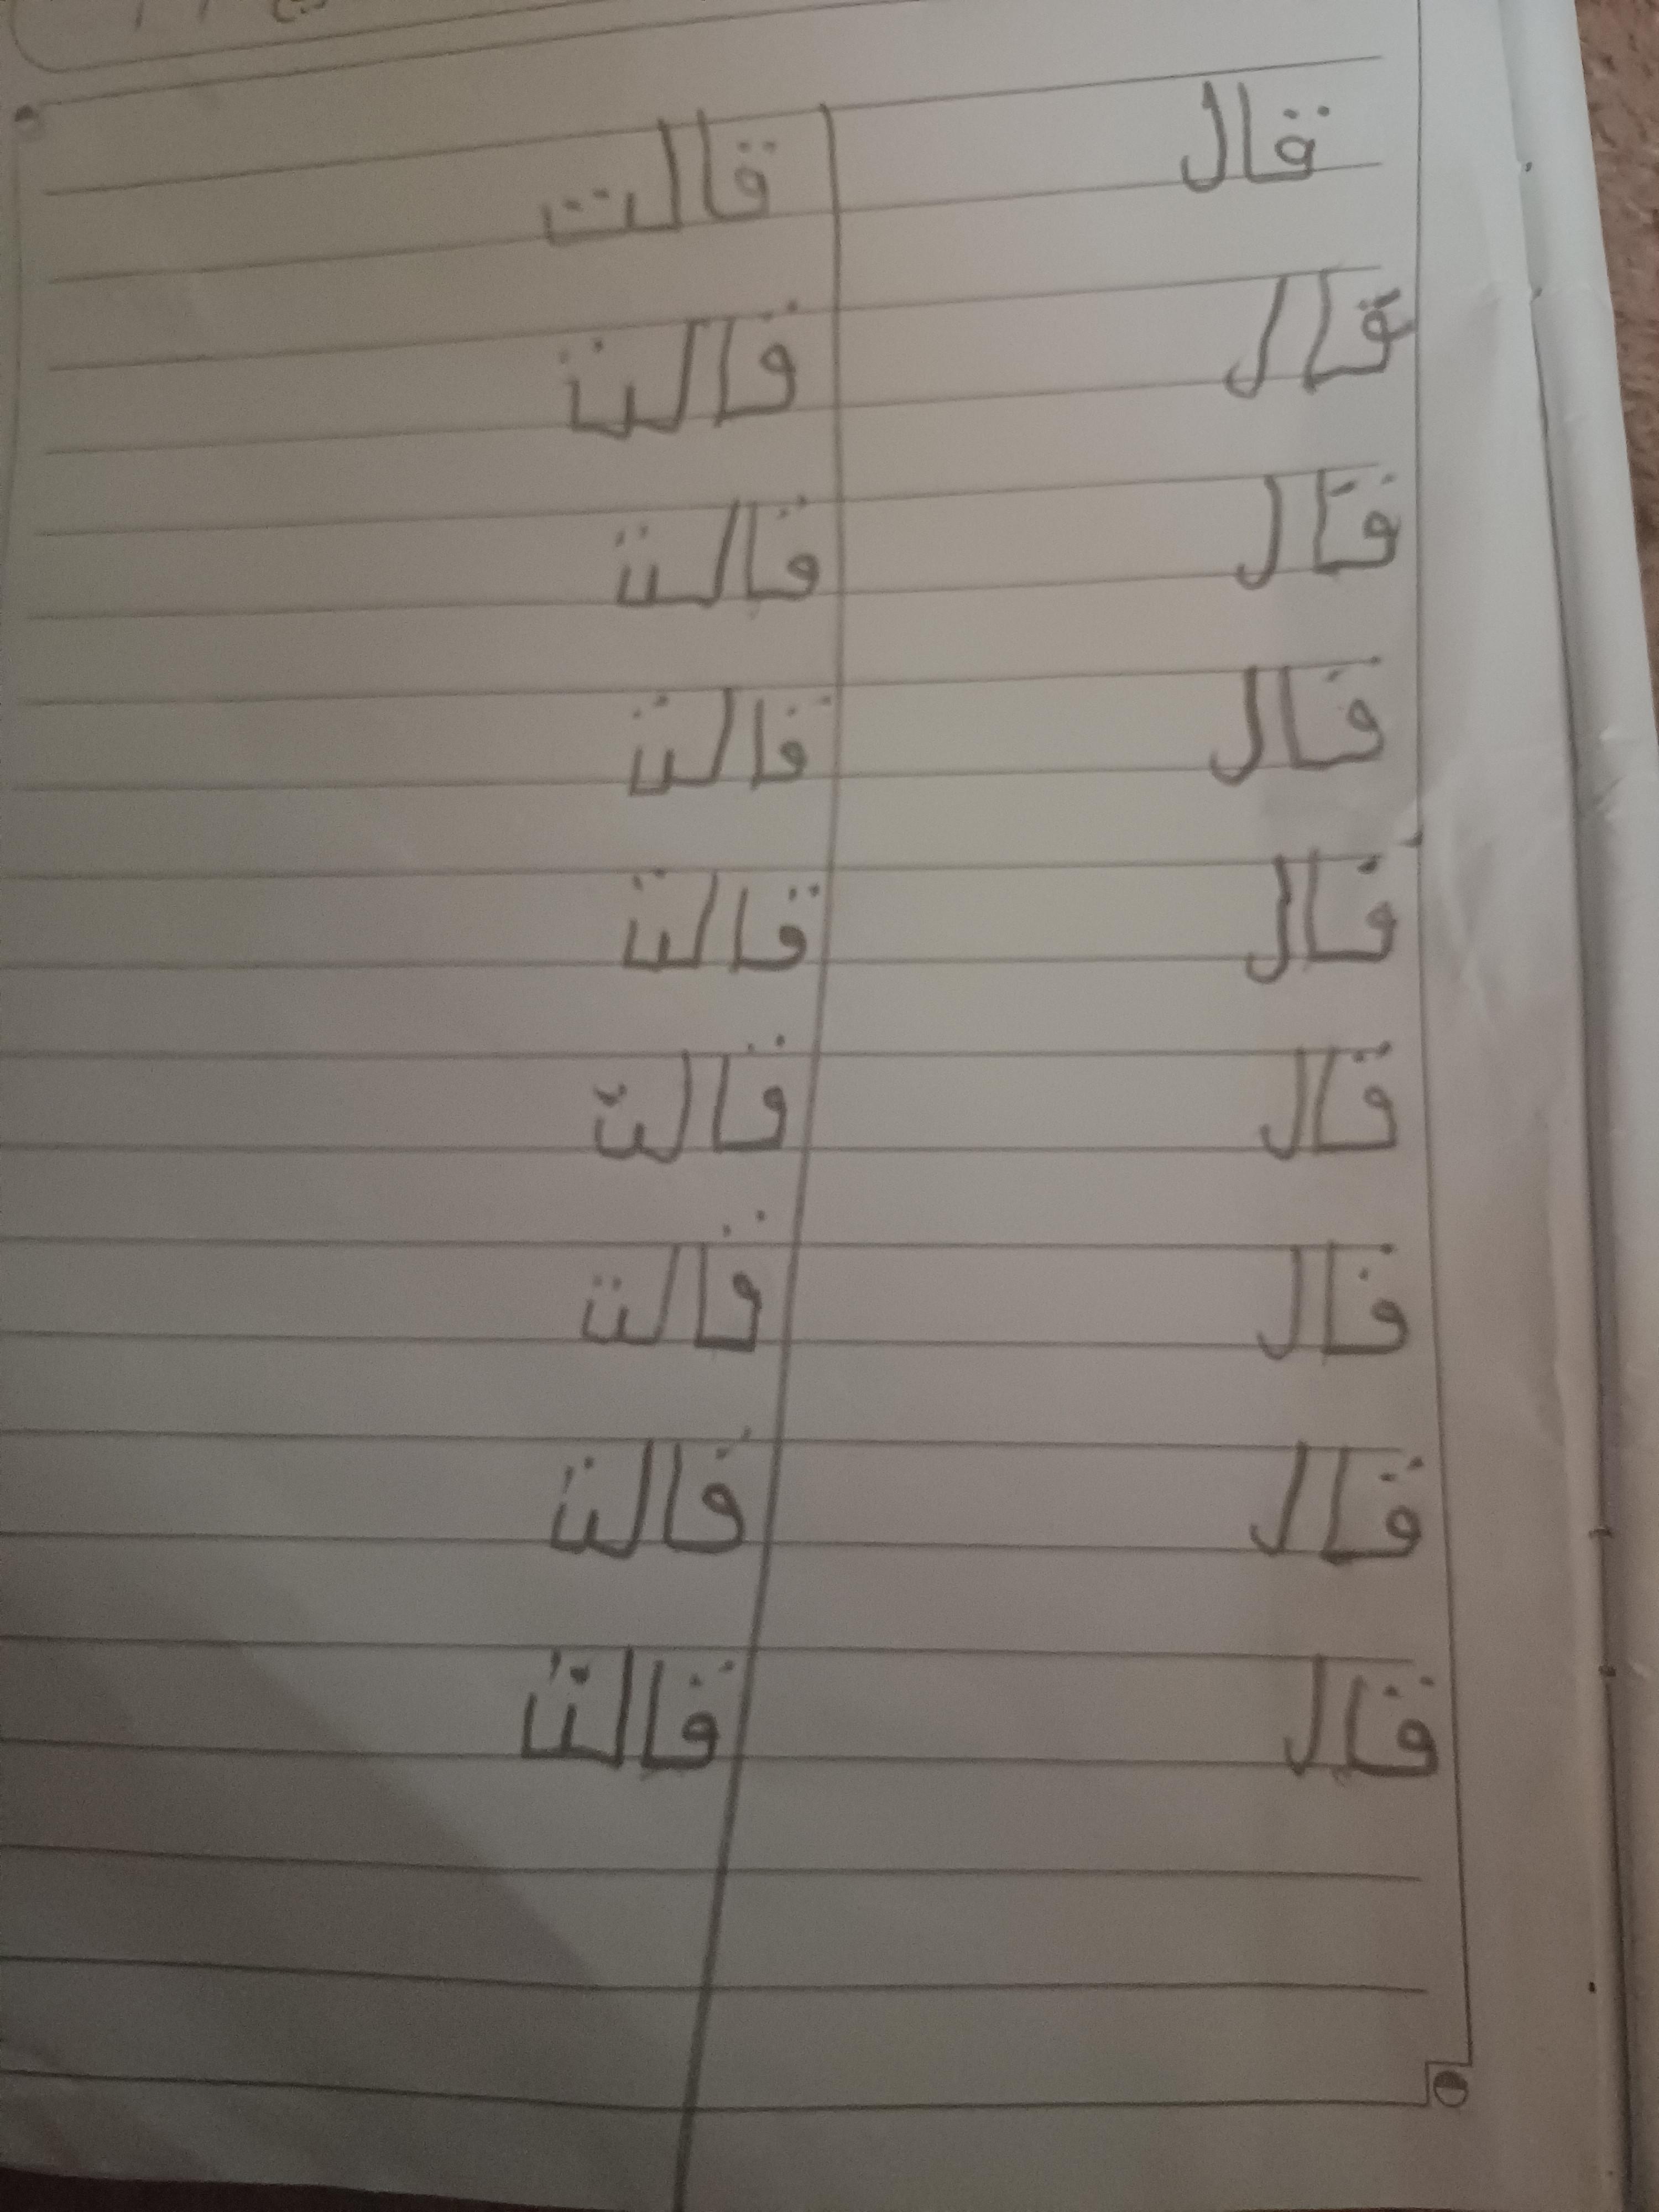 قال قالت
قال قالت
قال قالت
قال قالت
قال قالت
قال قالت
قال قالت
قال قالت
قال قالت